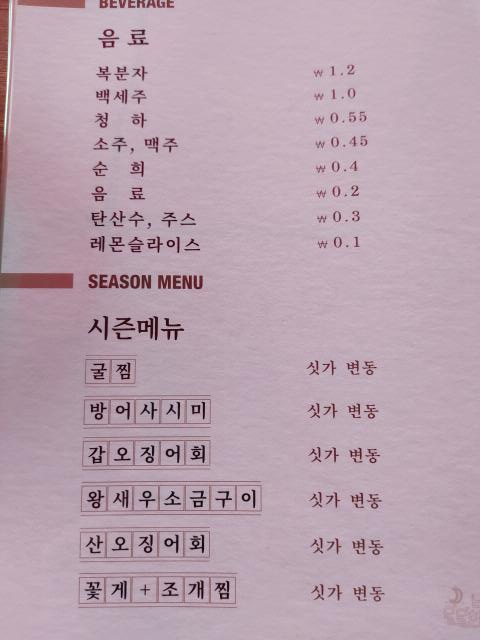 BEVERAGE
음 료
복분자 ₩ 1.2
백세주 ₩ 1.0
청 하 ₩ 0.55
소주, 맥주 ₩ 0.45
순 희 ₩ 0.4
음 료 ₩ 0.2
탄산수, 주스 ₩ 0.3
레몬슬라이스 ₩ 0.1
SEASON MENU
시즌메뉴
굴찜 싯가 변동
방어사시미 싯가 변동
갑오징어회 싯가 변동
왕새우소금구이 싯가 변동
산오징어회 싯가 변동
꽃게+조개찜 싯가 변동